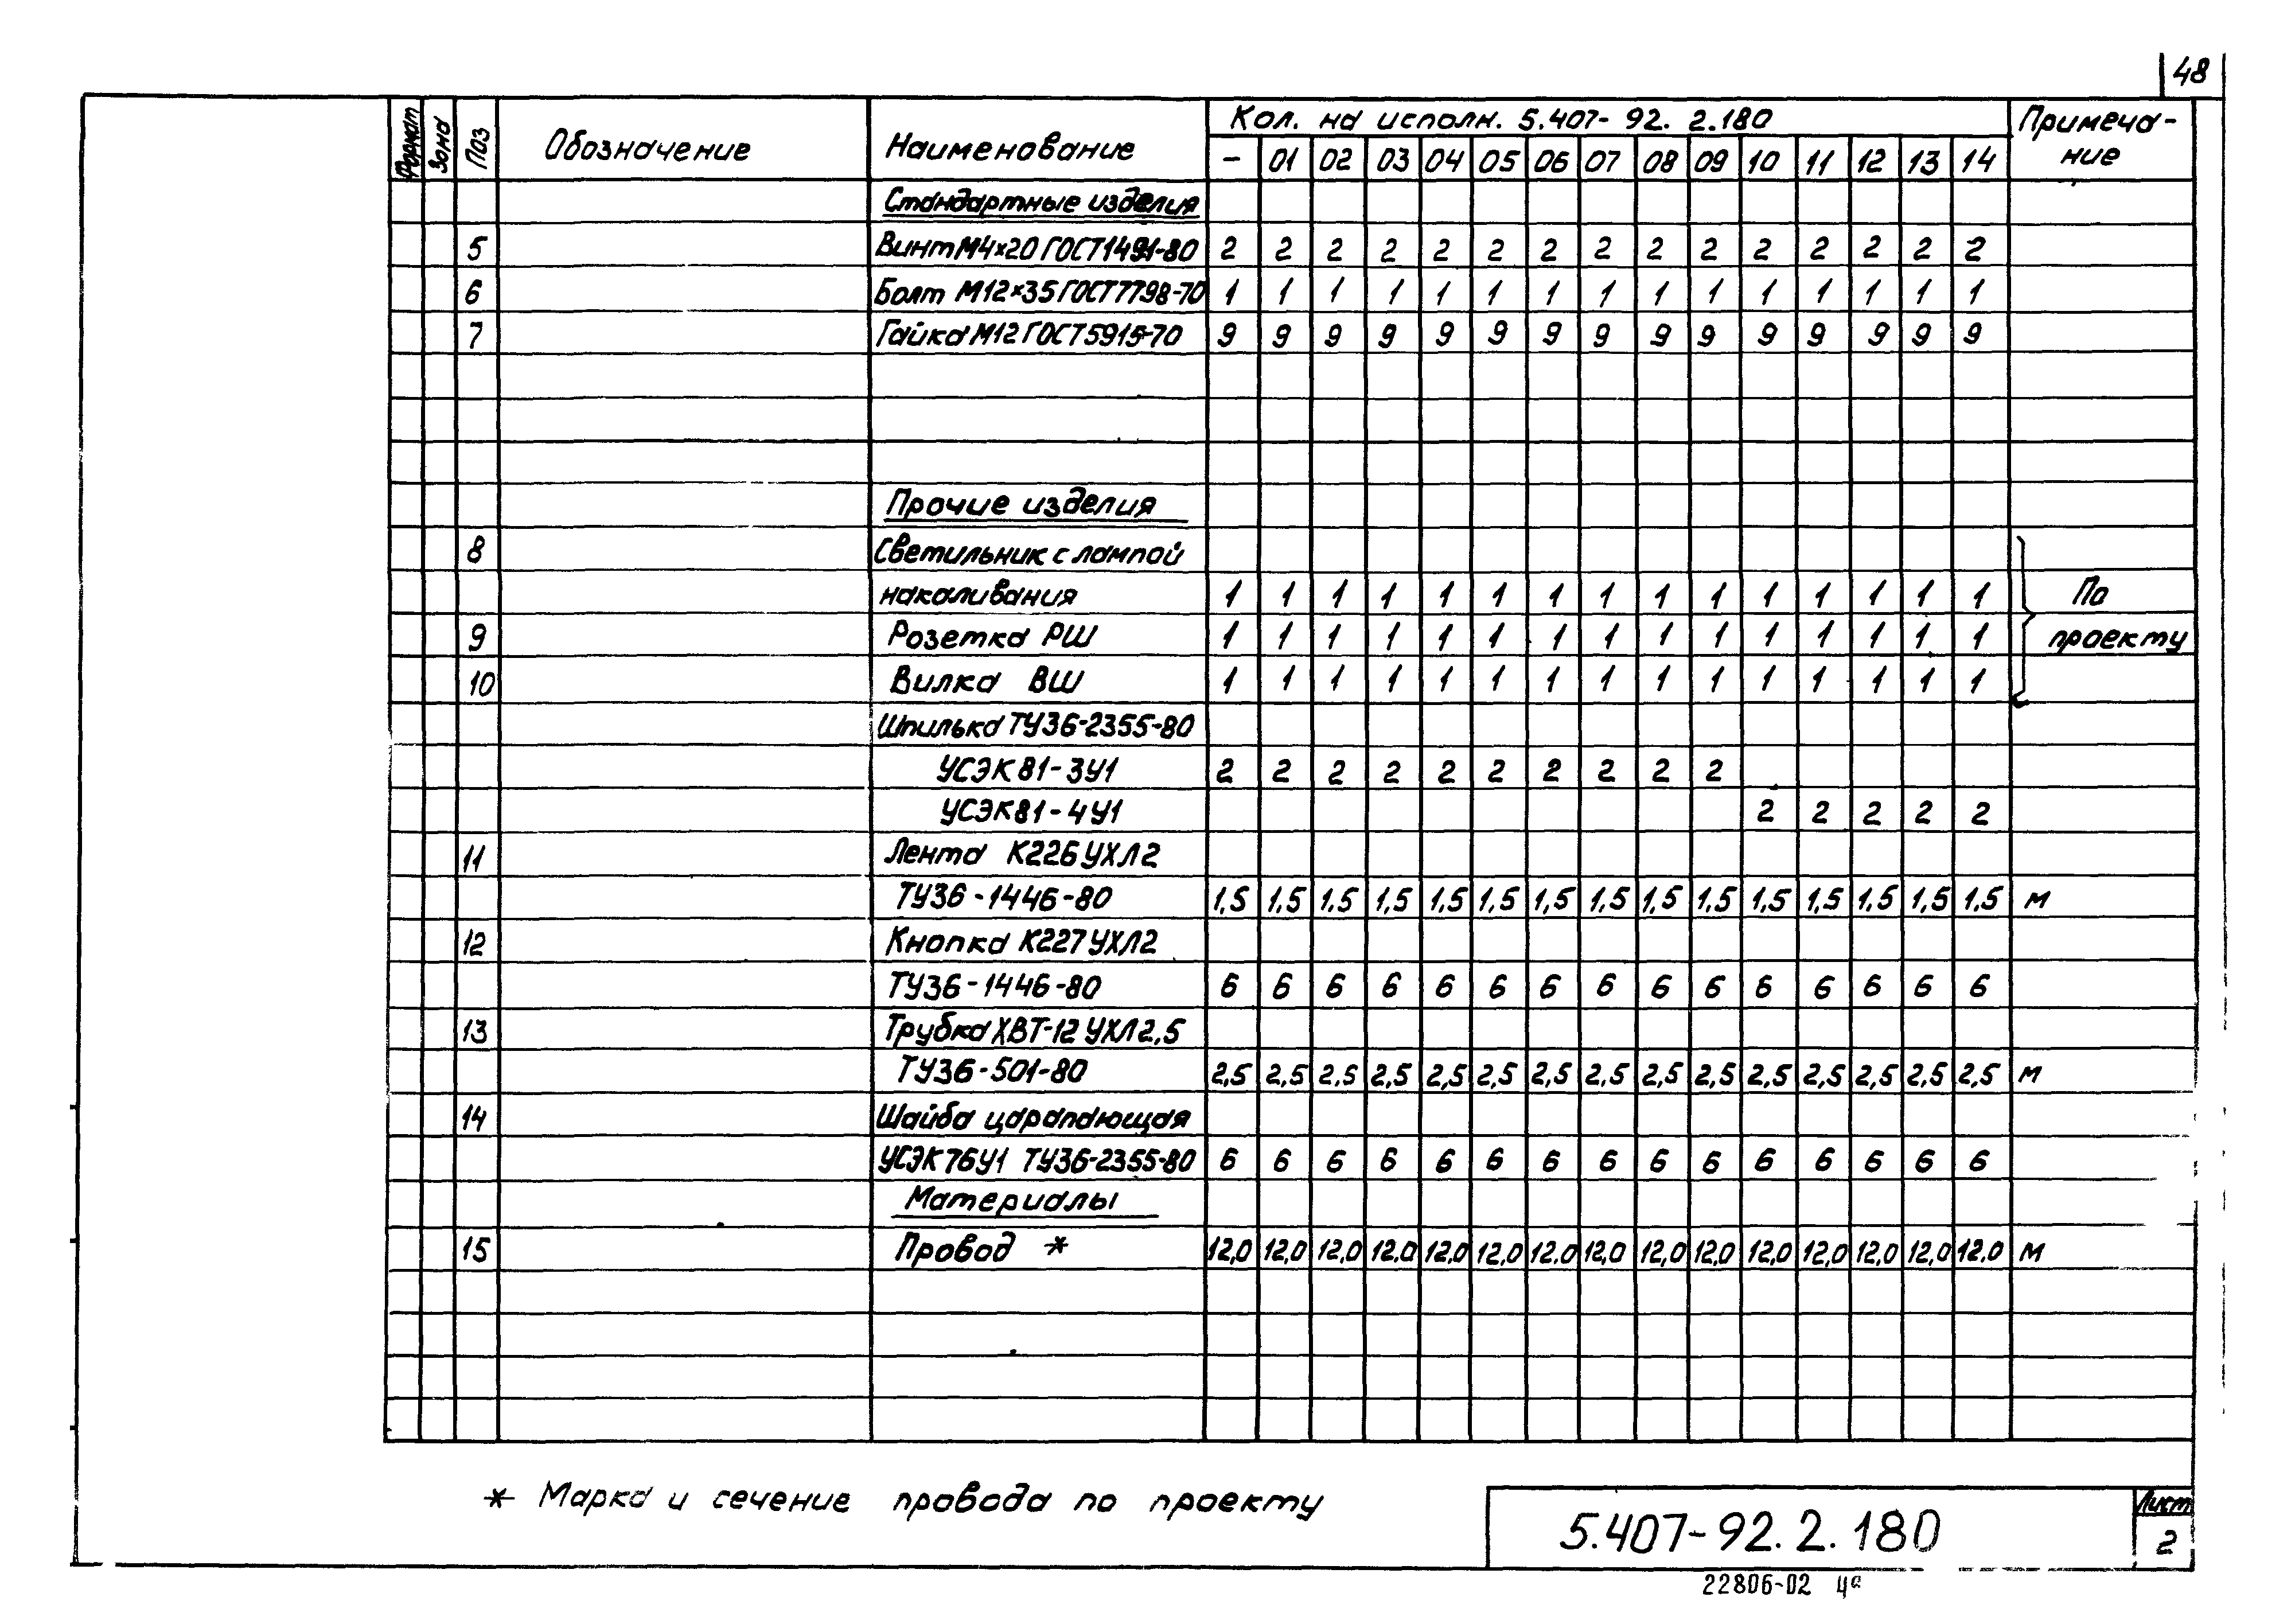 48
Формат Зона Поз Обозначение Наименование Кол. на исполн. 5.407-92. 2.180 Примеча-
ние
- 01 02 03 04 05 06 07 08 09 10 11 12 13 14
Стандартные изделия
5 Винт М4×20 ГОСТ1491-80 2 2 2 2 2 2 2 2 2 2 2 2 2 2 2
6 Болт М12×35 ГОСТ7798-70 1 1 1 1 1 1 1 1 1 1 1 1 1 1 1
7 Гайка М12 ГОСТ5915-70 9 9 9 9 9 9 9 9 9 9 9 9 9 9 9
Прочие изделия
8 Светильник с лампой
накаливания 1 1 1 1 1 1 1 1 1 1 1 1 1 1 1 По
9 Розетка РШ 1 1 1 1 1 1 1 1 1 1 1 1 1 1 1 проекту
10 Вилка ВШ 1 1 1 1 1 1 1 1 1 1 1 1 1 1 1
Шпилька ТУ36-2355-80
УСЭК81-3У1 2 2 2 2 2 2 2 2 2 2
УСЭК81-4У1 2 2 2 2 2
11 Лента К226УХЛ2
ТУ36-1446-80 1,5 1,5 1,5 1,5 1,5 1,5 1,5 1,5 1,5 1,5 1,5 1,5 1,5 1,5 1,5 м
12 Кнопка К227УХЛ2
ТУ36-1446-80 6 6 6 6 6 6 6 6 6 6 6 6 6 6 6
13 Трубка ХВТ-12 УХЛ2,5
ТУ36-501-80 2,5 2,5 2,5 2,5 2,5 2,5 2,5 2,5 2,5 2,5 2,5 2,5 2,5 2,5 2,5 м
14 Шайба царапающая
УСЭК76У1 ТУ36-2355-80 6 6 6 6 6 6 6 6 6 6 6 6 6 6 6
Материалы
15 Провод * 12,0 12,0 12,0 12,0 12,0 12,0 12,0 12,0 12,0 12,0 12,0 12,0 12,0 12,0 12,0 м
* Марка и сечение провода по проекту
5.407-92.2.180
Лист
2
22806-02